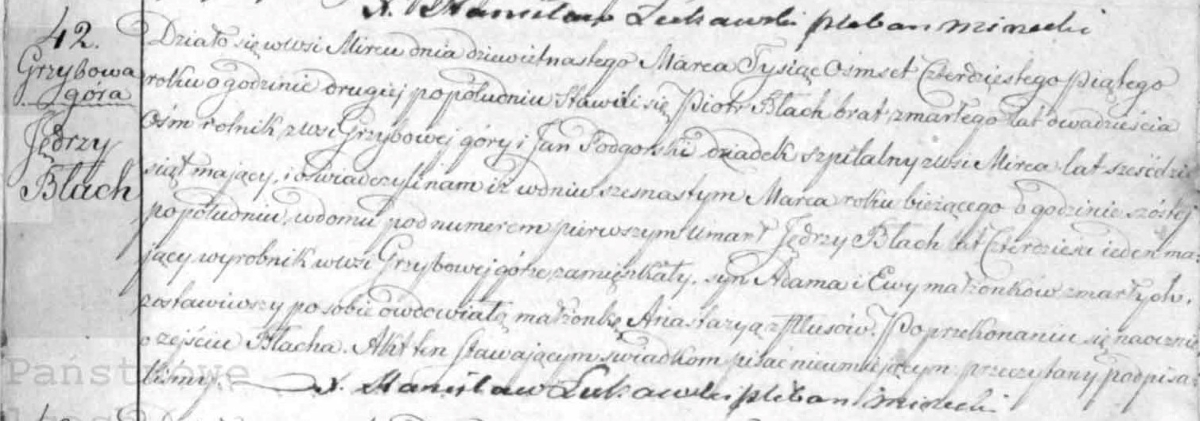 X. Stanisław Lukawski pleban mirecki
42.
Grzybowa
góra
Jędrzy
Błach
Działo się w wsi Mircu dnia dziewiętnastego Marca Tysiąc Ośmset Czterdziestego piątego
roku o godzinie drugiej popołudniu Stawili się Piotr Błach brat zmarłego lat dwadzieścia
Ośm rolnik z wsi Grzybowej góry i Jan Podgorski dziadek szpitalny z wsi Mirca lat sześćdzie
siąt mający, i oświadczyli nam iż w dniu szesnastym Marca roku bieżącego o godzinie szóstej
popołudniu, w domu pod numerem pierwszym umarł Jędrzy Błach lat Czterdzieści ieden ma
jący wyrobnik w wsi Grzybowej górze zamięszkały, syn Adama i Ewy małżonków zmarłych,
zostawiwszy po sobie owdowiałę małżonkę Anastazyą z Flusów. Po przekonaniu się naocznie
o zejściu Błacha. Akt ten stawającym świadkom pisać nieumiejącym przeczytany podpisa
liśmy.
X. Stanisław Lukawski pleban mirecki
Państwowe